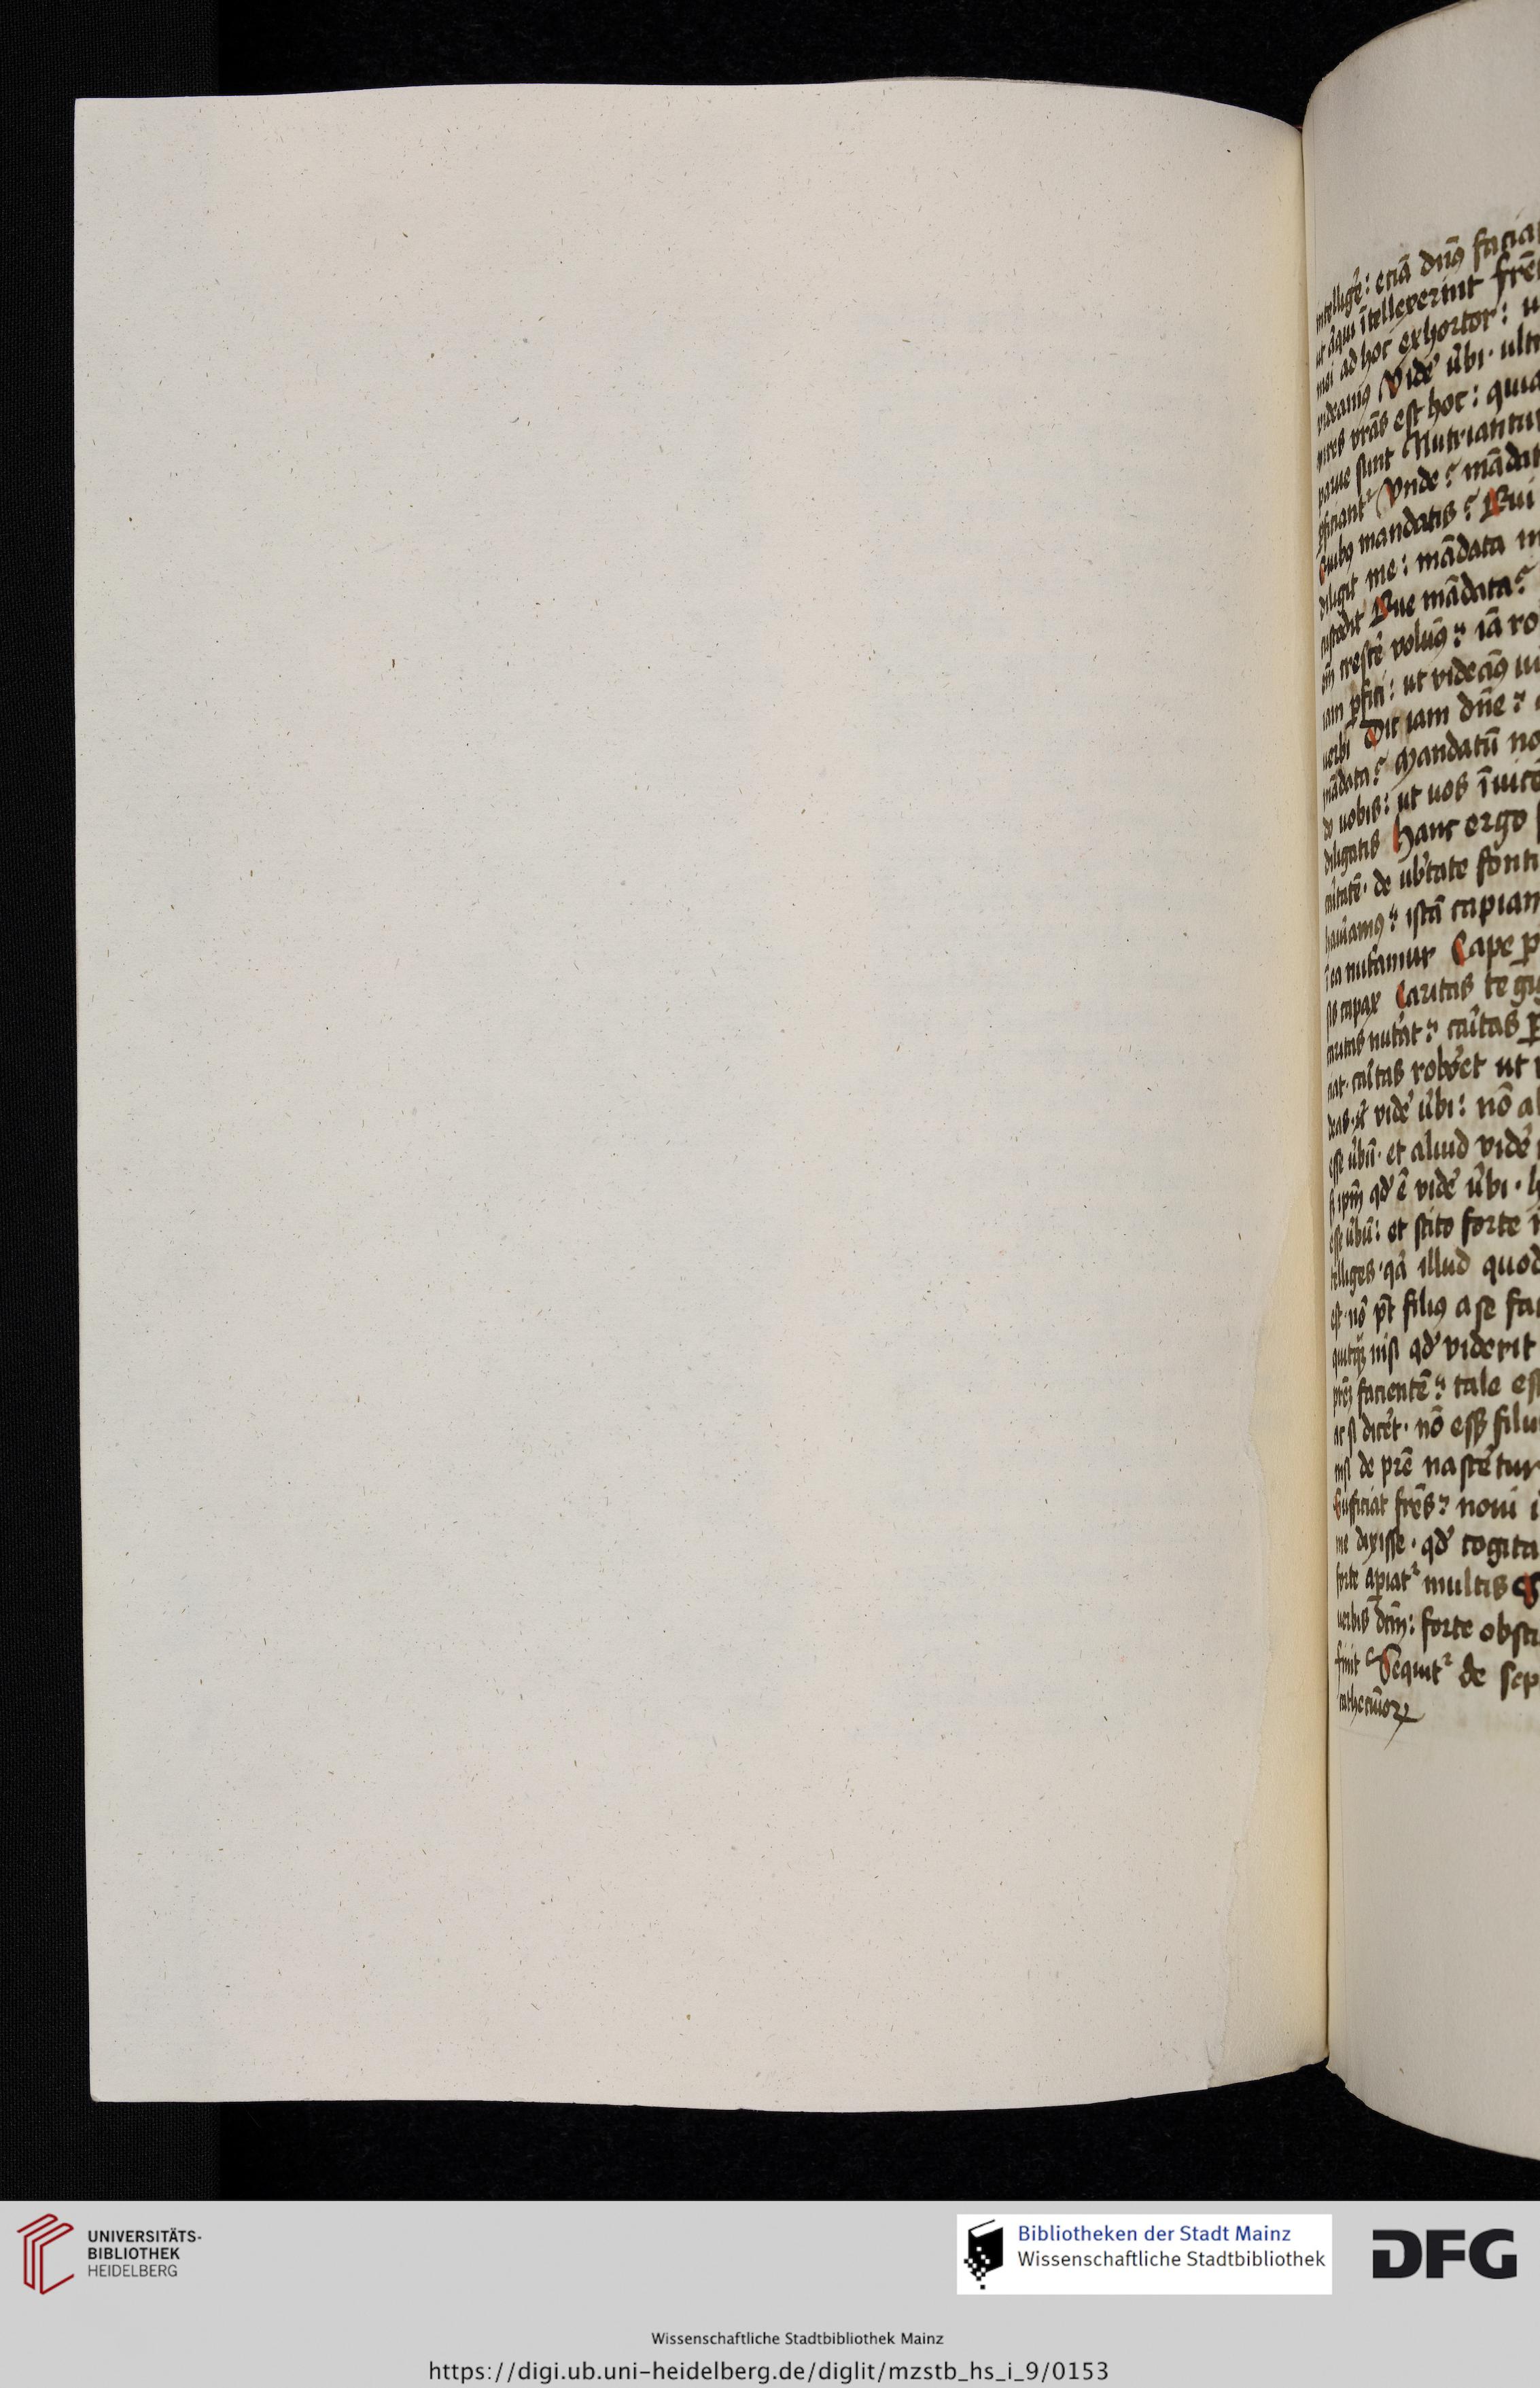 intelligere: eciā dn̄s faciat
ut aꝗm ītellexerint frēs
mei ad hoc exhortor: u
videamꝰ Vide ūbi · ult
vires vrās est hoc: quia
parue sunt Nutriantur
Vnde? mādat
Quibꝰ mandatis? Qui
diligit me: mādata m
custodit Que mādata?
cresce volumꝰ: iā ro
iam ꝑfici: ut videamꝰ ui
verbi Dic iam dn̄e:
mādata? Mandatū no
do uobis: ut uos īuicē
diligatis Hanc ergo
caritatē · de ub̓tate fonti
hauriamꝰ: istā capiam
ī ea nutiamur Cape p
sis capax Caritas te gi
caritas nut̓at: caritas p
iat · caritas roboret ut
deas vide ūbi: nō al
esse ūbū · et aliud vide
s ipm̄ qd̓ ē vide ūbi · h
esse ūbū: et scito forte i
telliges · qā illud quod
est · nō pt̄ filiꝰ a se fa
quicꝗ nisi qd̓ viderit
prēȝ facientē: tale es
ac si dicet · nō esse filiu
nisi de prē nascetur
Sufficiat frēs: noui i
me dixisse · qd̓ cogita
forte apiat᷑ multis
verbis dcm̄: forte obscu
finit Sequit᷑ de sep
cathecuoꝝ
UNIVERSITÄTS-
BIBLIOTHEK
HEIDELBERG
Bibliotheken der Stadt Mainz
Wissenschaftliche Stadtbibliothek
DFG
Wissenschaftliche Stadtbibliothek Mainz
https://digi.ub.uni-heidelberg.de/diglit/mzstb_hs_i_9/0153